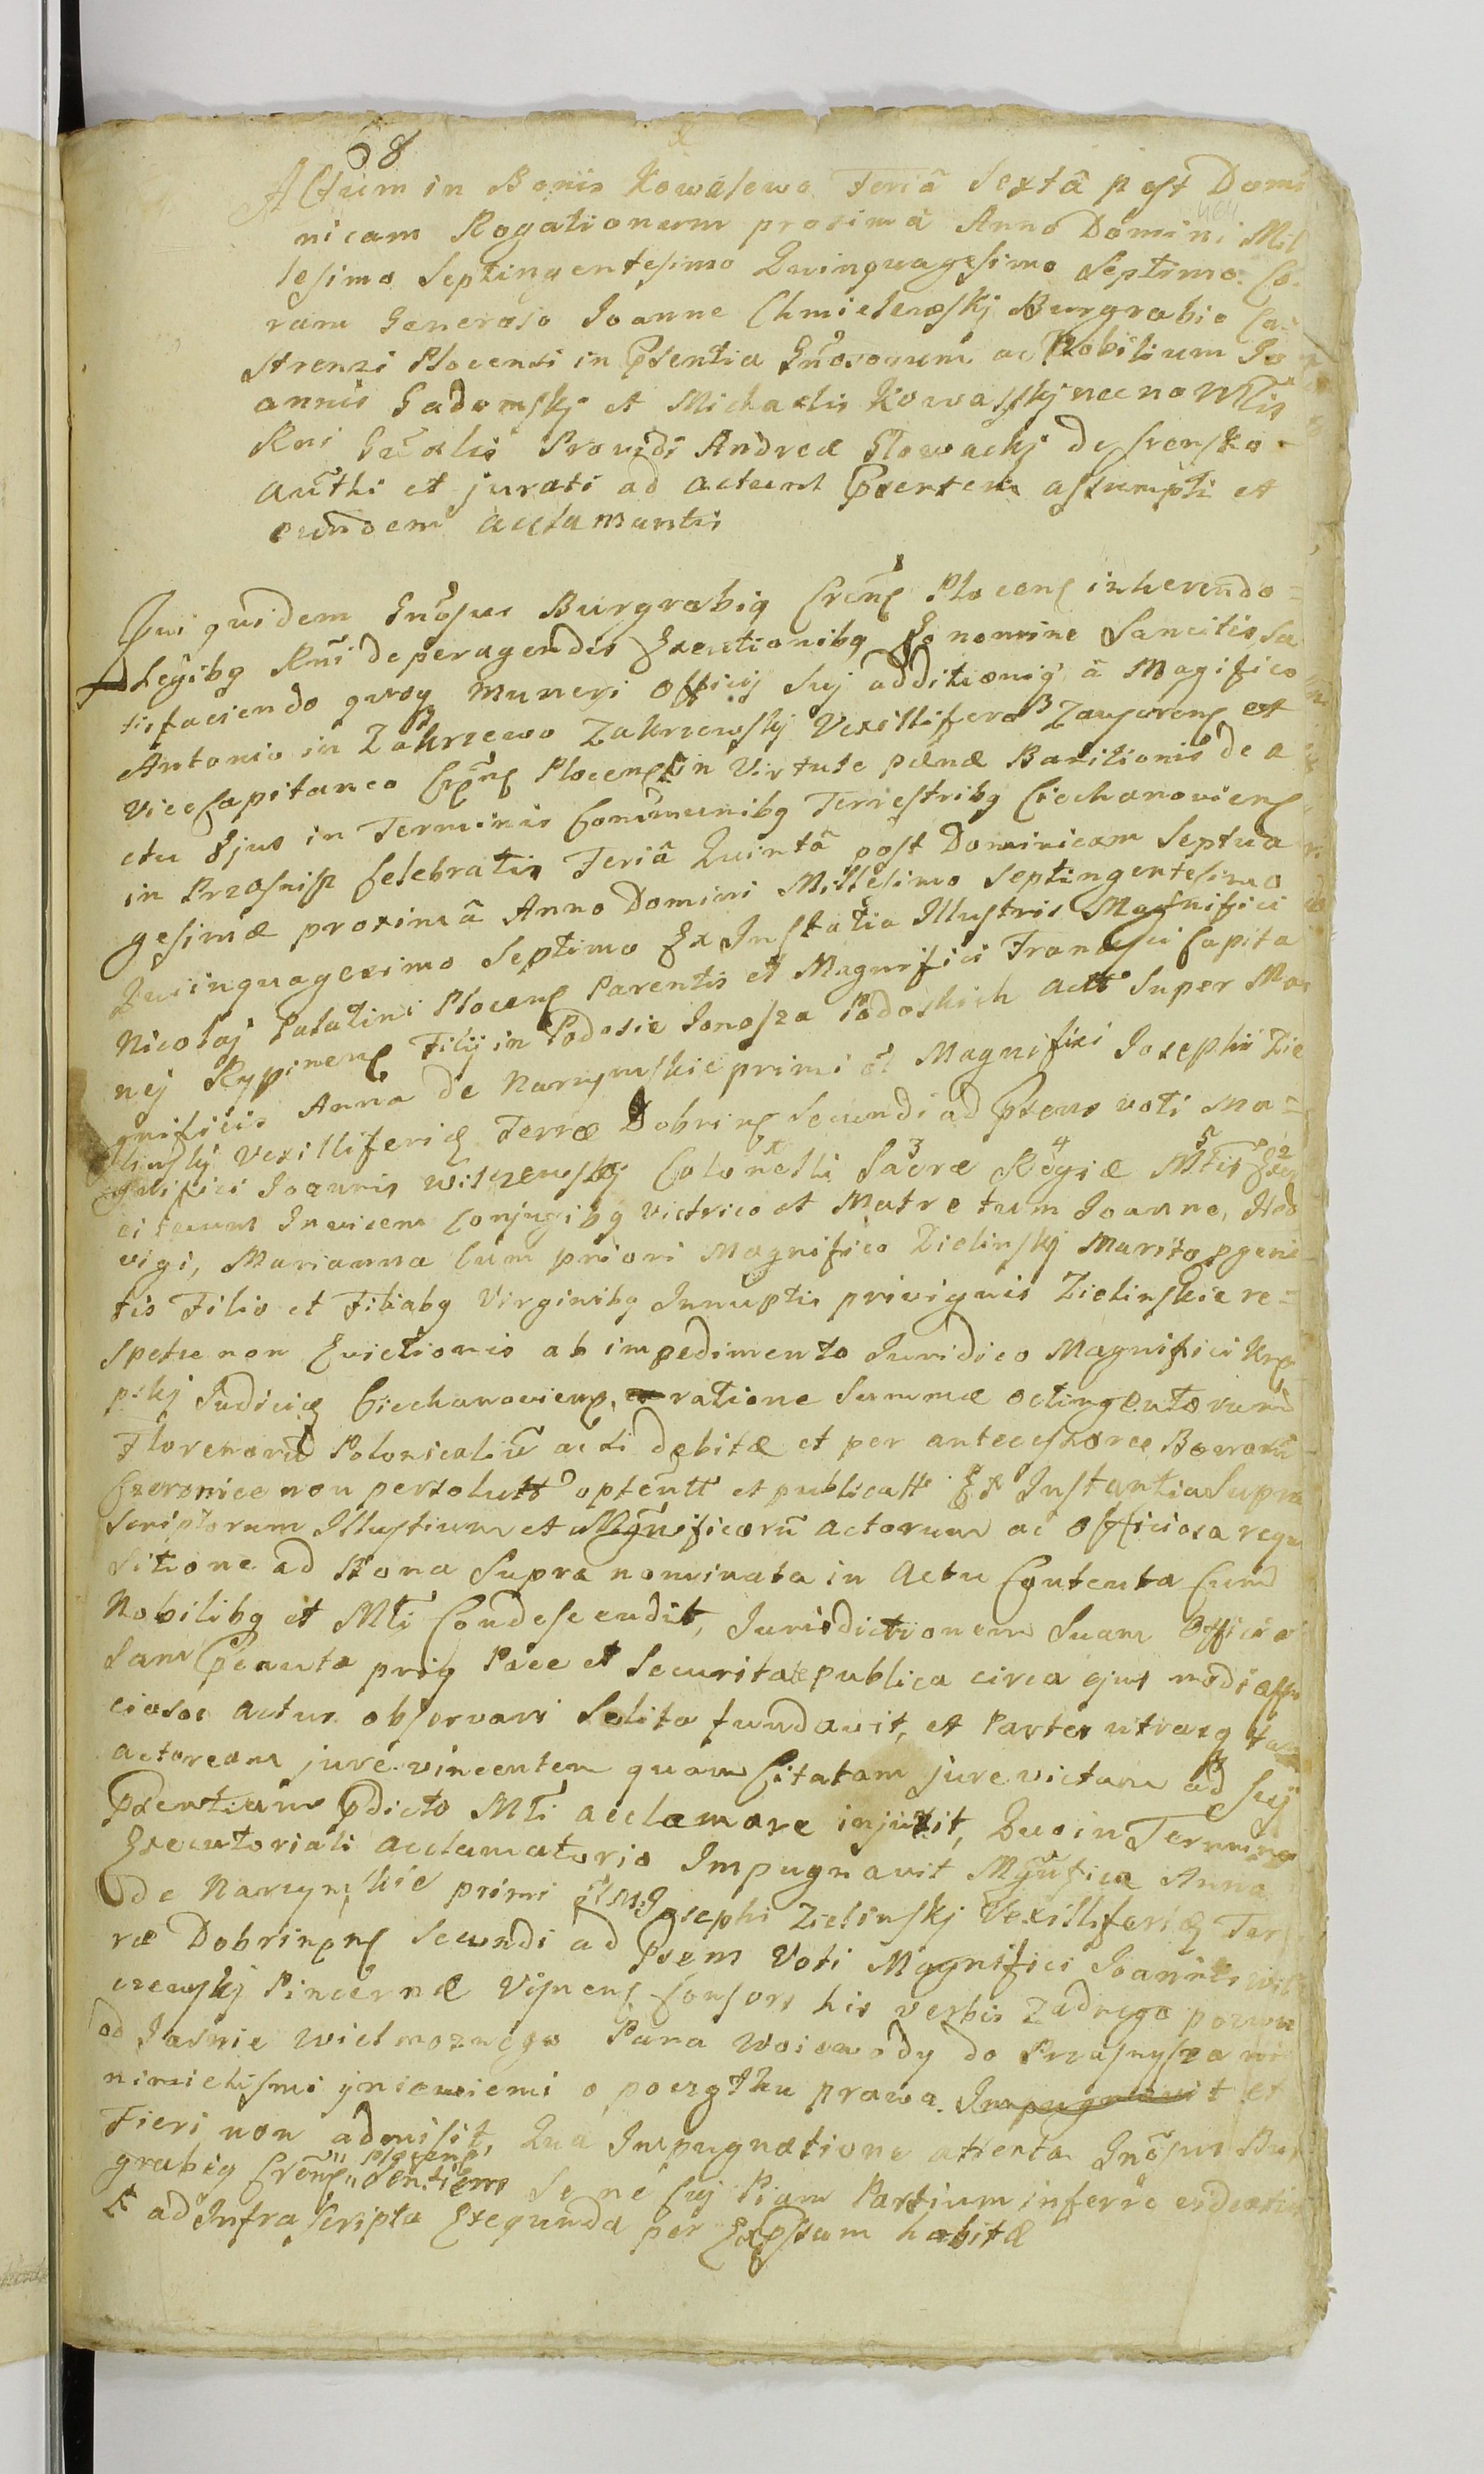 68
Actum in Bonis Kowalewo Feriâ Sextâ post Domi
nicam Rogationum proximâ Anno Domini Mil
lesimo Septingentesimo Quinquagesimo Septimo. Co-
ram Generoso Joanne Chmielewskj Burgrabio Ca-
strensi Plocensi in Pñsentia Gnõsorum ac Nobilium Jo
annis Gadomskj et Michaelis Kowasskj necno Mtlis
Rni Gñalis Providi Andreæ Głowackj de Srensko
auñthi et jurati ad actum Pñsentem assumpti et
eundem acclamantis
Qui quidem Gnõsus Burgrabiq Crênç Plocenç inherendo=
Legibq Rñi de peragendis Executionibq Eo nomine Sancitis Sa
tisfaciendo quoq Muneri Officij Suj additioniq à Magifico
Antonio in Zakrzewo Zakrzewskj Vexillifero Zawcrenç et
Vice Capitaneo Crênç Plocenç in Virtute pœnæ Banitionis de a
ctu Ejus in Terminis Communibq Terrestribq Ciechanovienç
in Przasnisz Celebratis Feriâ Quintâ post Dominicam Septua
gesimæ proximâ Anno Domini Millesimo Septingentesimo
Quinquagesimo Septimo Ex Instatia Illustris Magnifici
Nicolaj Palatini Plocenç Parentis et Magnifici Francisci Capita
nej Rypinenç Filij in Podosie Jonosza Podoskich actt Super Ma
gnificis Anna de Narzymskie primi et Magnifici Josephi Zie
linskj Vexilliferiq Terræ Dobrinç Secundi ad Pñsens voti Ma=
gnifici Joannis Wilczewskj Colonelli Sacræ Regiæ Mtis Exer
citeum Invicem Conjugibq Victrico et Matre tum Joanne, Hed
vigi, Marianna Cum priori Magnifico Zielinskj Marito pgeni
tis Filio et Filiabq Virginibq Innuptis privignis Zielinskie re=
spetu non Evictionis ab impedimento Juridico Magnifici Krę
pskj Judiciq Ciechanovienç, ratione Summæ octingentorum
Florenorũ Polonicaliũ acti debitæ et per antecessores Bonorũ
Czernice non persolutt optentt et publicatt Ex Instantia Supra
Scriptorum Illustrium et Mgnificorũ actorum ac officiosa requi
sitione ad Bona Supra nominata in actu Contenta Cum
Nobilibq et Mtli Condescendit, Jurisdictionem Suam Officio
Sam Pcauta priq Pace et Securitate publica circa ejus modi offi
ciosos actus observari Solita fundavit, et Partes utrasq tam
actoream jure vincentem quam Citatam jure victam ad Suj
Pñsentiam pdicto Mtli acclamare injuxit, Quo in Termino
Executoriali acclamatorio Impugnavit Mgñfica Anna
de Narzymskie primi et Mg Josephi Zielinskj Vexilliferiq Ter
ræ Dobrinenç Secundi ad Psens Voti Magnifici Joannis Wil
czewskj Pincernæ Visnenç Consors his verbis Zadnego pozwu
od Jasnie Wielmoznego Pana Woiewody do Przasnysza ni
nimielismi yniewiemi o początku prawa. et
Fieri non admisit, Quâ Impugnatione attenta Gnõsus Bur
grabiq Crênç Plocenç Sentiens Se ne Cuj Piam Partium inferre
et ad Infra Scripta Exequenda per Expssum habitæ